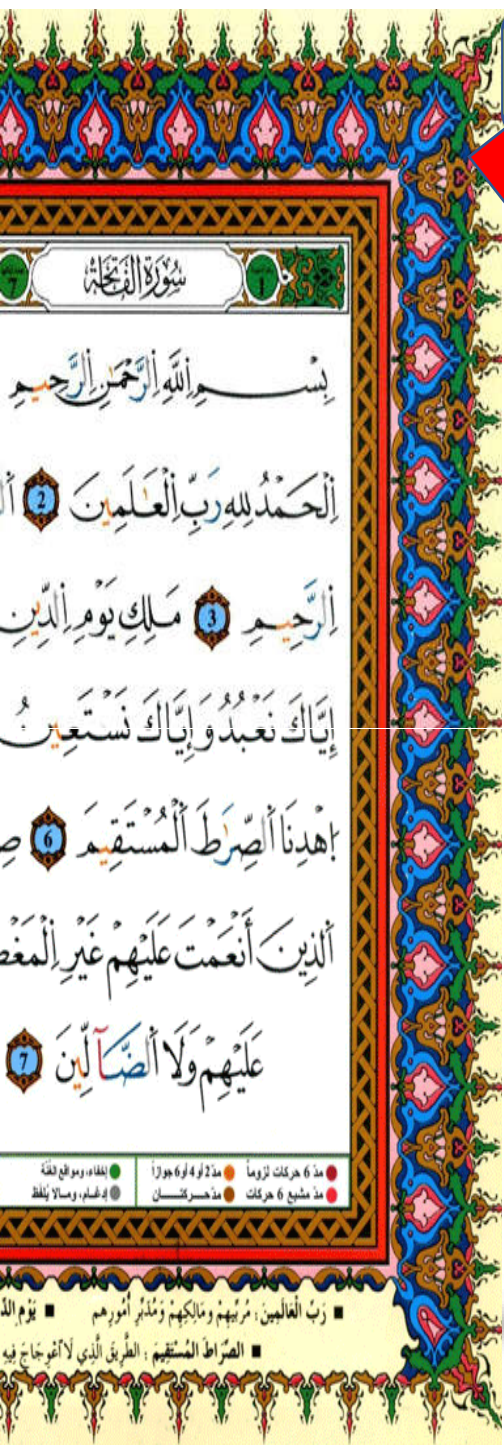 سُورَةُ الْفَاتِحَةِ 1 7
بِسْمِ اِللَّهِ اِلرَّحْمَٰنِ اِلرَّحِيمِ
اِلْحَمْدُ لِلهِ رَبِّ اِلْعَٰلَمِينَ 2
اِلرَّحِيمِ 3 مَلِكِ يَوْمِ اِلدِّينِ
إِيَّاكَ نَعْبُدُ وَإِيَّاكَ نَسْتَعِينُ
اِهْدِنَا اَلصِّرَٰطَ اَلْمُسْتَقِيمَ 6
اَلذِينَ أَنْعَمْتَ عَلَيْهِمْ غَيْرِ
عَلَيْهِمْ وَلَا اَلضَّآلِّينَ 7
مدّ 6 حركات لزوماً مدّ 2 أو 4 أو 6 جوازاً إخفاء، ومواقع الغنّة
مدّ مشبع 6 حركات مدّ حركتــان إدغـام، ومـالا يُلفظ
رَبُّ الْعَالَمِينَ : مُرَبِّيهِمْ وَمَالِكِهِمْ وَمُدَبِّرِ أُمُورِهِم يَوْمِ
الصِّرَاطَ المُسْتَقِيمَ : الطَّرِيقَ الَّذِي لَا اعْوِجَاجَ فِيهِ